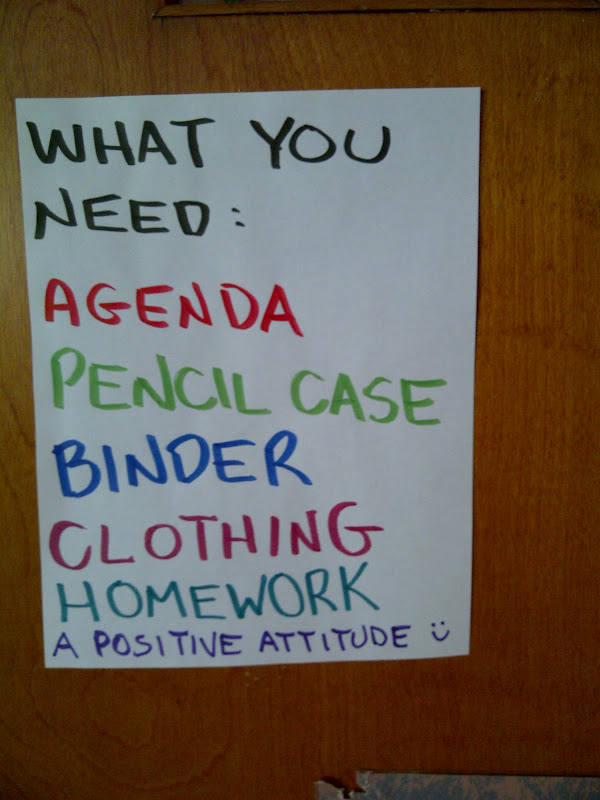 WHAT YOU
NEED:
AGENDA
PENCIL CASE
BINDER
CLOTHING
HOMEWORK
A POSITIVE ATTITUDE :)